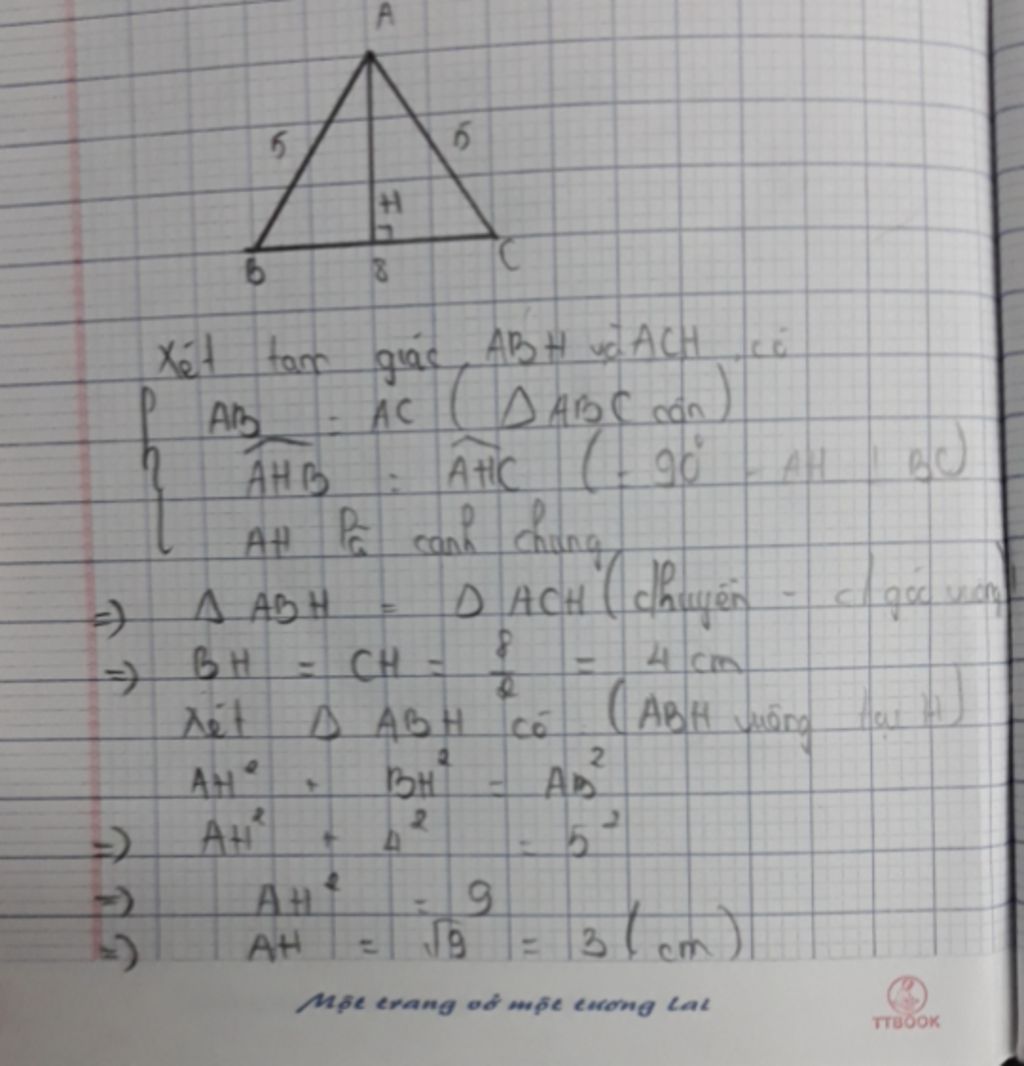 A
5 5
H
B 8 C
Xét tam giác ABH và ACH có
AB = AC ( Δ ABC cân)
AHB = AHC ( = 90° - AH ⊥ BC)
AH là cạnh chung
=> Δ ABH = Δ ACH ( chuyền - c/góc vuông)
=> BH = CH = 8/2 = 4 cm
Xét Δ ABH có (ABH vuông tại H)
AH² + BH² = AB²
=> AH² + 4² = 5²
=> AH² = 9
=> AH = √9 = 3 ( cm )
Một trang vở một tương lai
TTBOOK